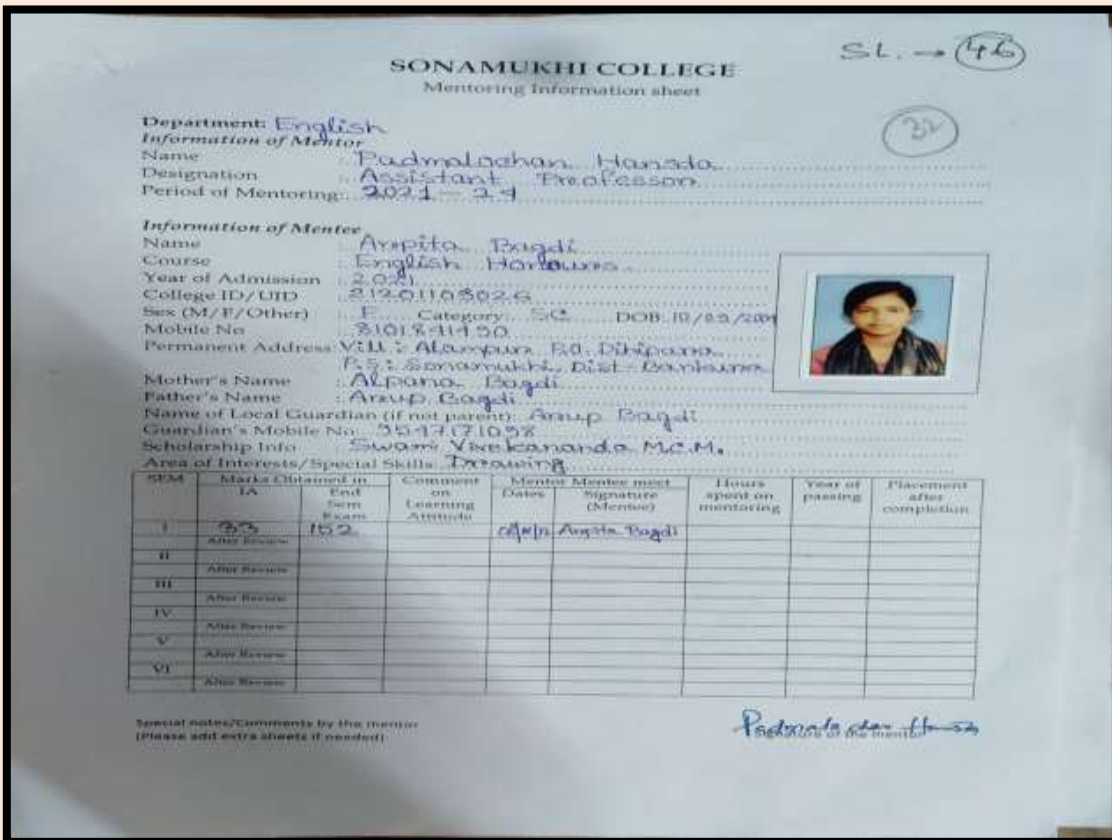 SL. → 46
SONAMUKHI COLLEGE
Mentoring Information sheet
32
Department: English
Information of Mentor
Name : Padmalochan Hansda
Designation : Assistant Professor
Period of Mentoring: 2021 - 24
Information of Mentee
Name : Arpita Bagdi
Course : English Honours
Year of Admission : 2021
College ID/UID :
Sex (M/F/Other) : F Category: SC DOB:
Mobile No :
Permanent Address: Vill: Alampur P.O. Dihipara
P.S: Sonamukhi, Dist - Bankura
Mother's Name : Alpana Bagdi
Father's Name : Anup Bagdi
Name of Local Guardian (if not parent): Anup Bagdi
Guardian's Mobile No:
Scholarship Info : Swami Vivekananda M.C.M.
Area of Interests/Special Skills: Drawing
SEM Marks Obtained in Comment on Learning Attitude Mentor Mentee meet Hours spent on mentoring Year of passing Placement after completion
IA End Sem Exam Dates Signature (Mentee)
I 33 152 Arpita Bagdi
After Review
II
After Review
III
After Review
IV
After Review
V
After Review
VI
After Review
Special notes/Comments by the mentor
(Please add extra sheets if needed)
Padmalochan Hansda
Signature of the mentor